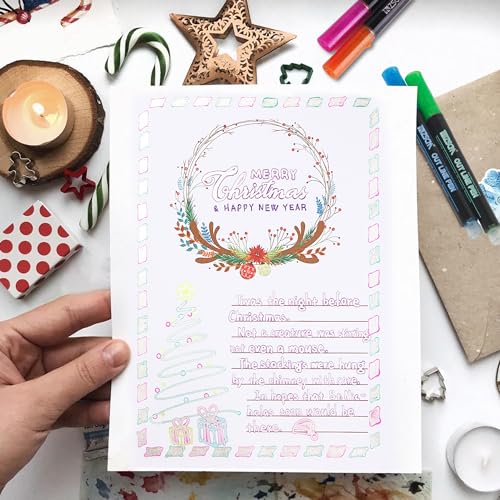 MERRY
Christmas
& HAPPY NEW YEAR
Twas the night before
Christmas.
Not a creature was stirring
not even a mouse.
The stockings were hung
by the chimney with care.
In hopes that St. Nic
holas soon would be
there.
OUT LINE PEN
OUT LINE PEN